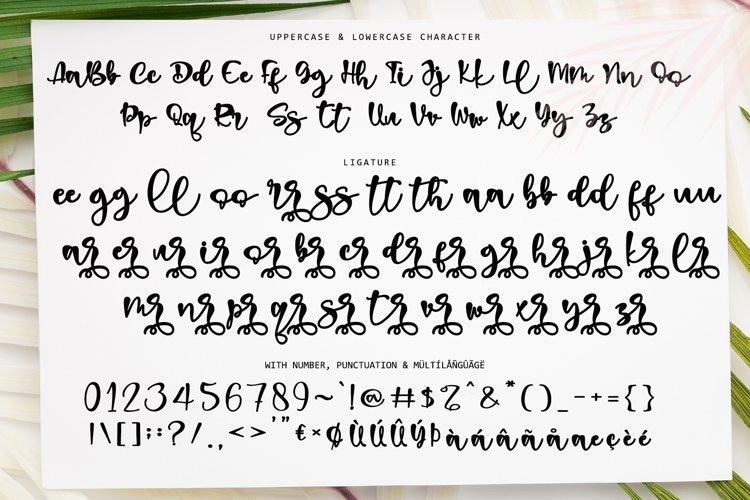 UPPERCASE & LOWERCASE CHARACTER
Aa Bb Cc Dd Ee Ff Gg Hh Ii Jj Kk Ll Mm Nn Oo
Pp Qq Rr Ss Tt Uu Vv Ww Xx Yy Zz
LIGATURE
ee gg ll oo rr ss tt th aa bb dd ff uu
ar er ur ir or br cr dr fr gr hr jr kr lr
mr nr pr qr sr tr vr wr xr yr zr
WITH NUMBER, PUNCTUATION & MÜLTÍLÅÑGÛÃGË
0123456789~`!@#$ ^&*()_-+={}
|\[];:?/.,<>'"€×ØÙÚÛÝÞàáâãäåæçèé